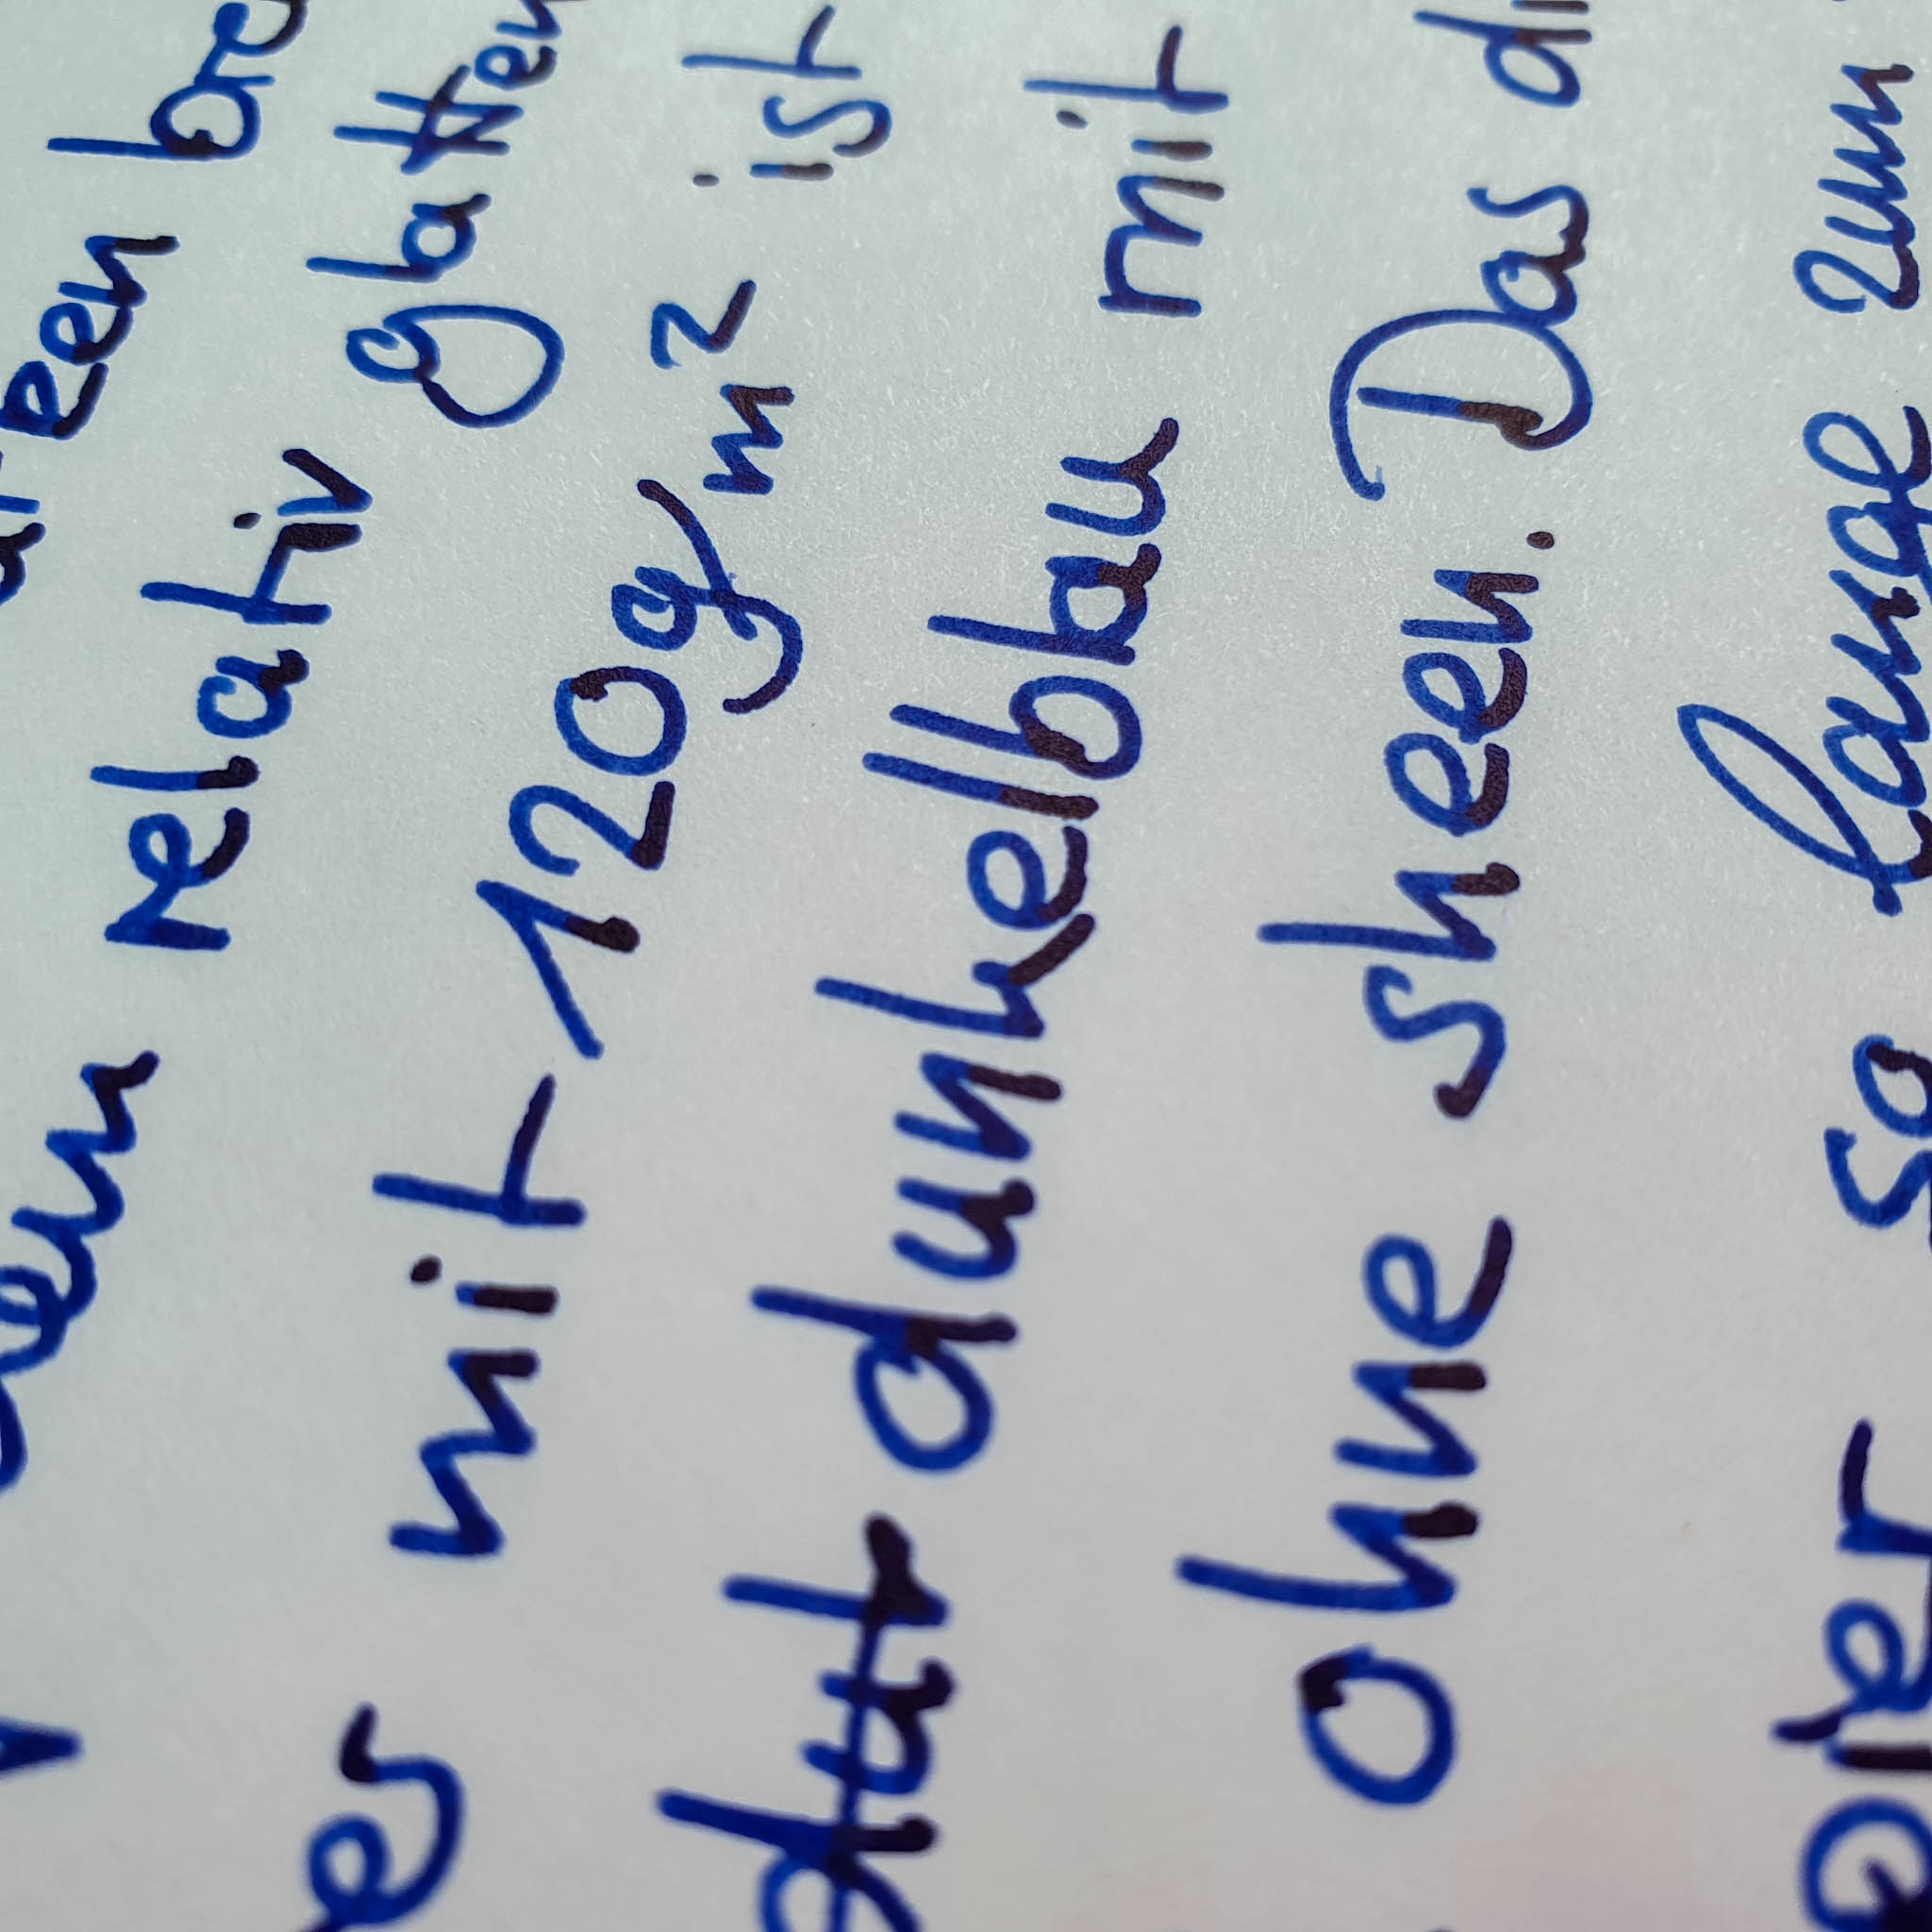 bre
relativ glatten
mit 120g/m² ist
dunkelblau mit
ohne sheen. Das
so lange zum